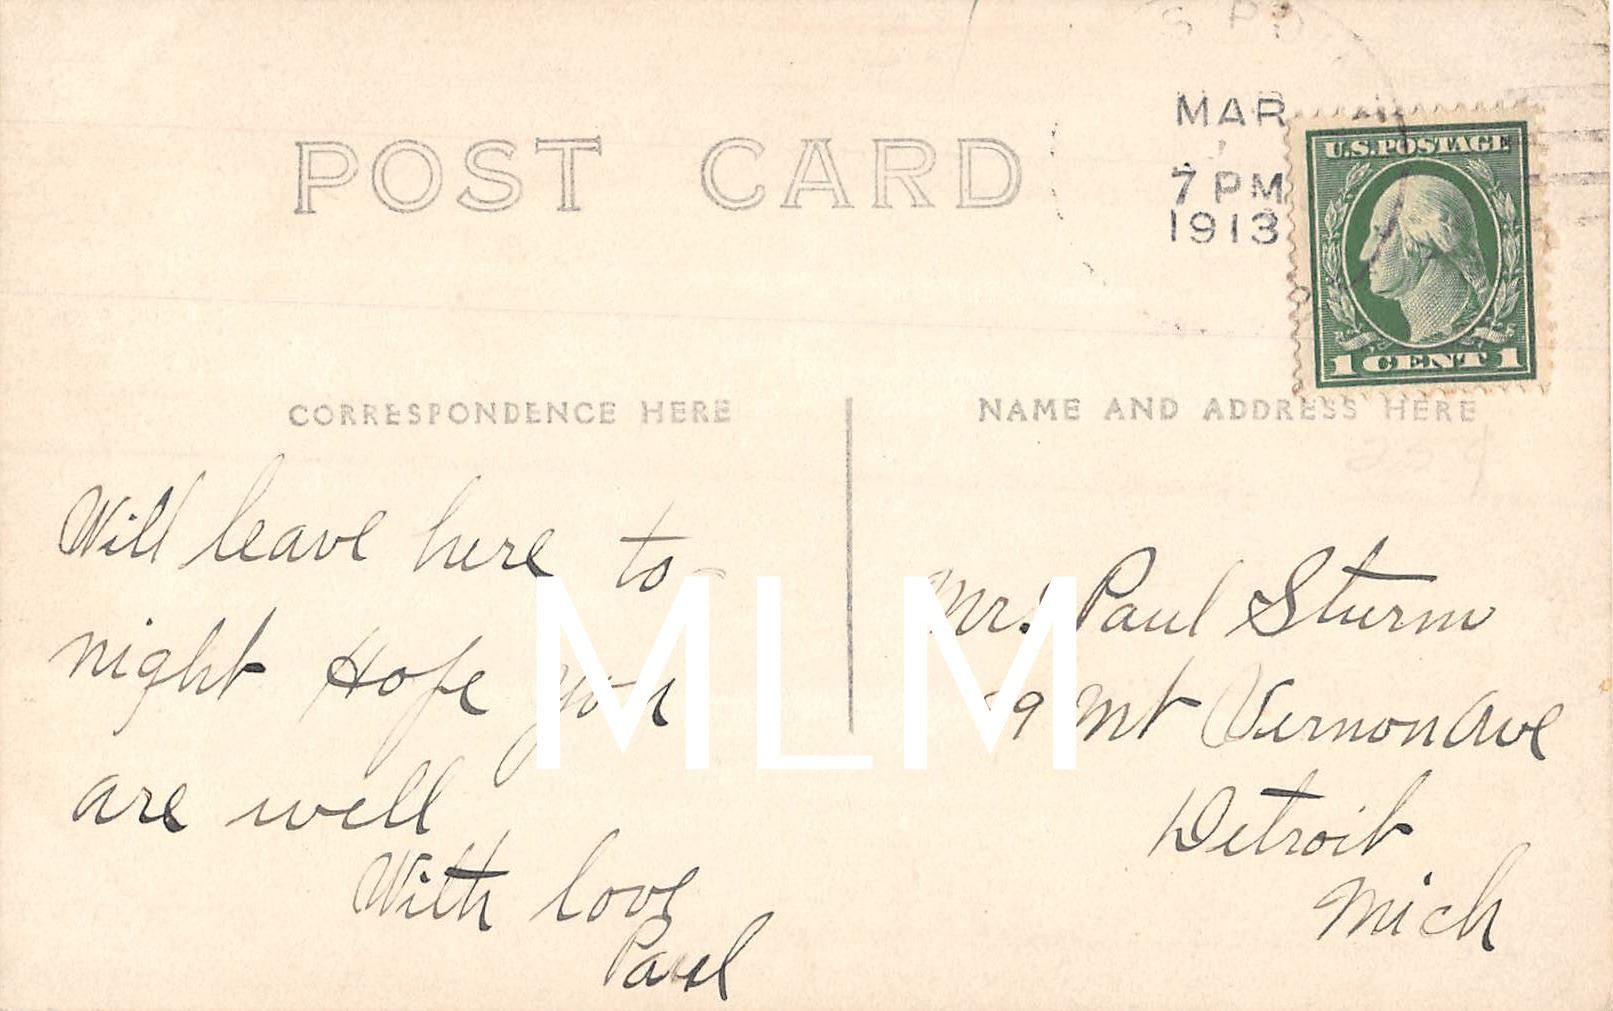 MAR
7 PM
1913
U.S. POSTAGE
1 CENT 1
POST CARD
CORRESPONDENCE HERE
NAME AND ADDRESS HERE
Will leave here to
night Hope you
are well
With love
Paul
Mrs Paul Sturm
99 Mt Vernon Ave
Detroit
Mich
MLM